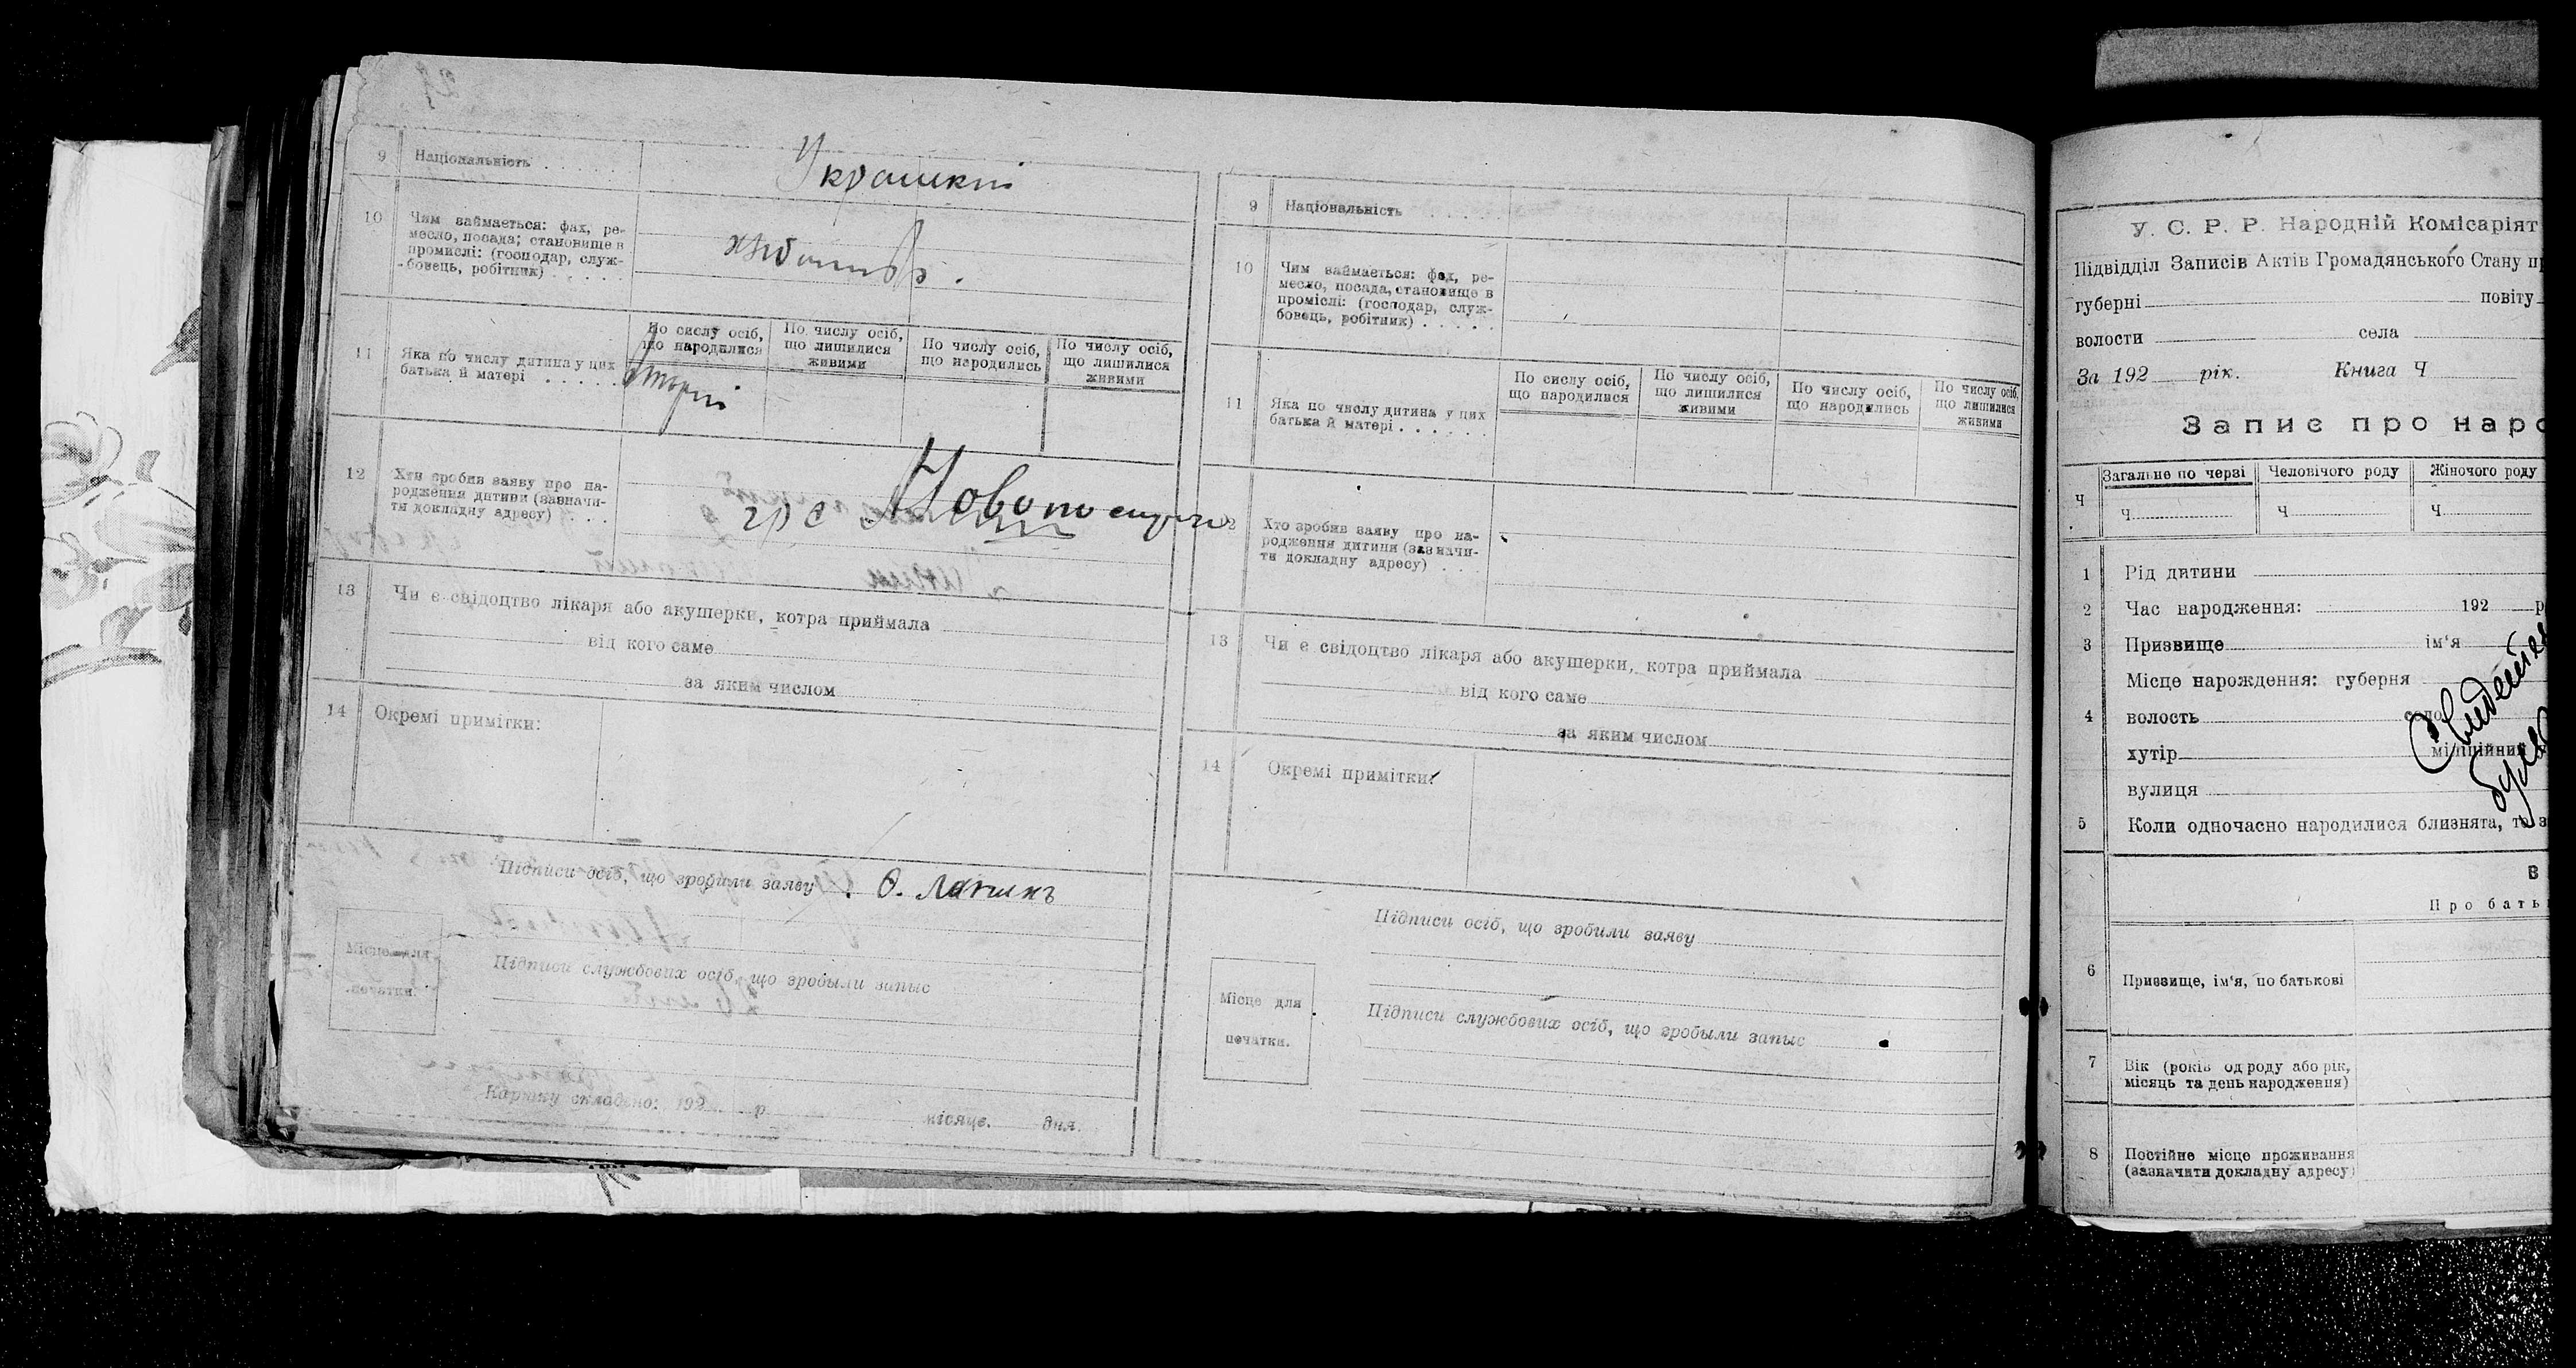 9 Національність . . . . . .
Украинкі
10 Чим займається: фах, ре-
месло, посада; становище в
промислі: (господар, служ-
бовець, робітник) . . . .
хлібороб.
11 Яка по числу дитина у цих
батька й матері . . . . .
По сислу осіб,
що народилися
По числу осіб,
що лишилися
живими
По числу осіб,
що народились
По числу осіб,
що лишилися
живими
12 Хти зробив заяву про на-
родження дитини (зазначи-
ти докладну адресу) . . .
гр с
13 Чи є свідоцтво лікаря або акушерки, котра приймала
від кого саме
за яким числом
14 Окремі примітки:
Підписи осіб, що зробили заяву
Ѳ. Лапшинъ
Місце для
печатки.
Підписи службових осіб, що зробыли запыс
Картку складено: 192 р місяце. дня.
9 Національність . . . .
10 Чим займається: фах, ре-
месло, посада, становище в
проміслі: (господар, служ-
бовець, робітник) . . . . .
11 Яка по числу дитина у цих
батька й матері . . . . . .
По сислу осіб,
що народилися
По числу осіб,
що лишилися
живими
По числу осіб,
що народились
По числу осіб,
що лишилися
живими
12 Хто зробив заяву про на-
родження дитини (зазначи-
ти докладну адресу) . . .
13 Чи є свідоцтво лікаря або акушерки, котра приймала
від кого саме
за яким числом
14 Окремі примітки:
Підписи осіб, що зробили заяву
Місце для
печатки.
Підписи службових осіб, що зробыли запыс
У. С. Р. Р. Народній Комісаріят
Підвідділ Записів Актів Громадянського Стану
губерні повіту
волости села
За 192 рік. Книга Ч
Запис про наро
Ч Загальне по черзі Человічого роду Жіночого роду
Ч Ч Ч
1 Рід дитини
2 Час народження: 192 р
3 Призвище ім'я
Місце нарождення: губерня
4 волость село
хутір міліційний
вулиця
5 Коли одночасно народилися близнята, то з
В
Про бать
6 Призвище, ім'я, по батькові
7 Вік (років од роду або рік,
місяць та день народження)
8 Постійне місце проживання
(зазначити докладну адресу)